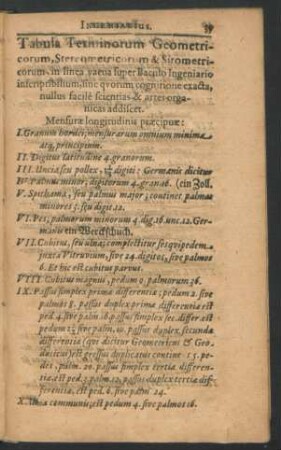 INGENIARIUS. 39
Tabula Terminorum Geometri-
corum, Stereometricorum & Sirometri-
corum, in linea vacua super Baculo Ingeniario
inscriptibilium, sine qvorum cognitione exacta,
nullus facile scientias & artes orga-
nicas addiscet.
Mensuræ longitudinis præcipuæ:
I. Granum hordei, mensurarum omnium minima
atq; principium.
II. Digitus latitudine 4. granorum.
III. Uncia seu pollex, digiti: Germanis dicitur
IV. Palmus minor, digitorum 4. gran. 16. (ein Zoll.
V. Spithama, seu palmus major; continet palmos
minores 3. seu digit. 12.
VI. Pes, palmorum minorum 4. dig. 16. unc. 12. Ger-
manis ein Werckschuch.
VII. Cubitus, seu ulna; complectitur sesqvipedem
juxta Vitruvium, sive 24. digitos, sive palmos
6. Et hic est cubitus parvus.
VIII. Cubitus magnus, pedum 9. palmorum 36.
IX. Passus simplex prima differentia; pedum 2. sive
palmos 8. passus duplex prima differentia est
ped. 4. sive palm. 16. passus simplex sec. differ. est
pedum 2 sive palm. 10. passus duplex, secunda
differentia (qui dicitur Geometricus & Geo-
dæticus) est gressus duplicatus contine s 5. pe-
des, palm. 20. passus simplex tertia differenti-
æ, est ped. 3. palm. 12. passus duplex tertia dif-
ferentia, est ped. 6. sive palm. 24.
X. communis, est pedum 4. sive palmos 16.